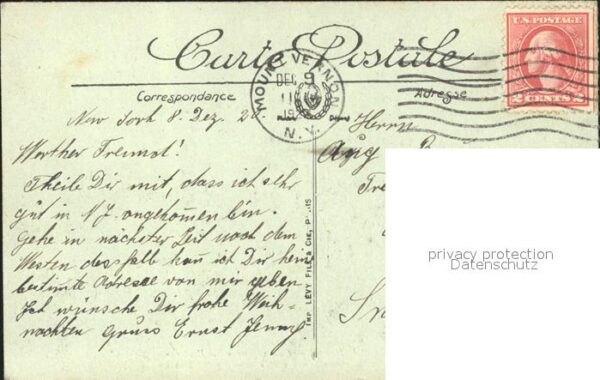 Carte Postale
U.S. POSTAGE
2 CENTS 2
MOUNT VERNON
DEC 9
11
19
N.Y.
Correspondance
Adresse
New York 8. Dez. 2
Werther Freund!
Theile Dir mit, dass ich sehr
gut in N.Y. angekomen bin.
Gehe in nächster Zeit nach dem
Westen desshalb kan ich Dir kein
bestimte Adresse von mir geben
Ich wünsche Dir frohe Weih-
nachten Gruss Ernst
Herrn
Aug
IMP. LÉVY FILS & CIE, PARIS
privacy protection
Datenschutz